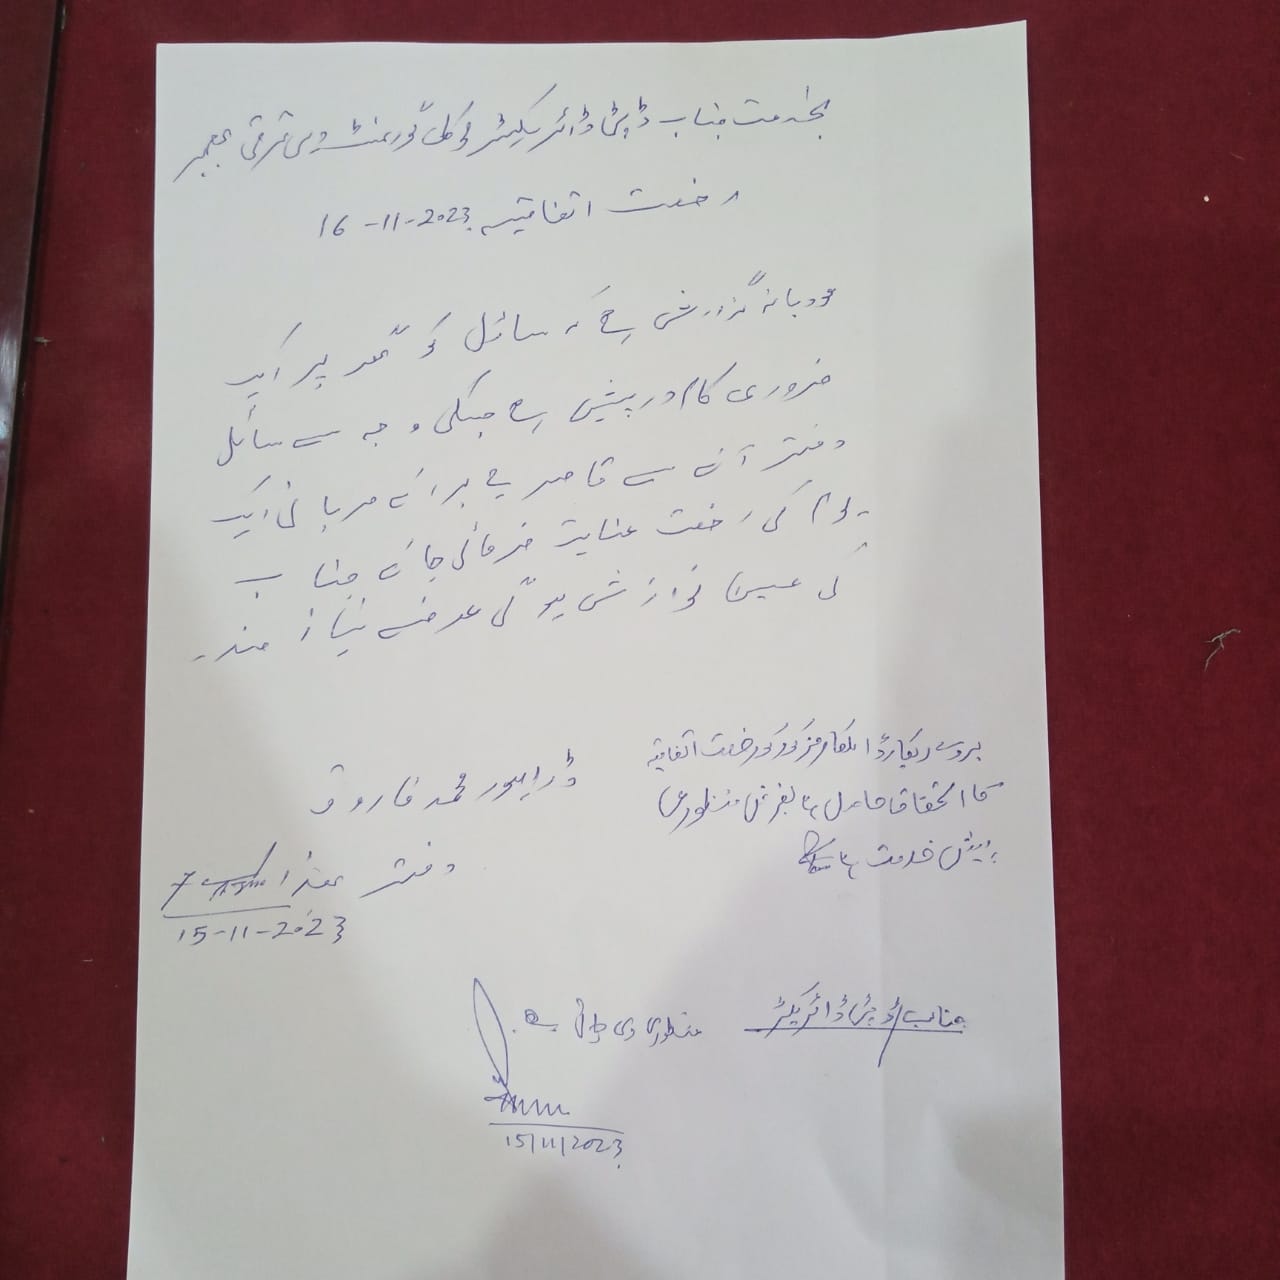 بخدمت جناب ڈپٹی ڈائریکٹر لوکل گورنمنٹ دیہی ترقی بھمبر
رخصت اتفاقیہ 16-11-2023
مودبانہ گزارش ہے کہ سائل کو گھر پر ایک
ضروری کام درپیش ہے جسکی وجہ سے سائل
دفتر آنے سے قاصر ہے برائے مہربانی ایک
یوم کی رخصت عنایت فرمائی جائے جناب
کی عین نوازش ہو گی عرضے نیاز مند۔
ڈرایور محمد فاروق
دفتر ھذا
15-11-2023
بروے ریکارڈ اہلکار مزکور کو رخصت اتفاقیہ
کا استحقاق حاصل ہے بغرض منظوری
پیش خدمت ہے
جناب ڈپٹی ڈائریکٹر
منظوری دی جاتی ہے۔
15/11/2023